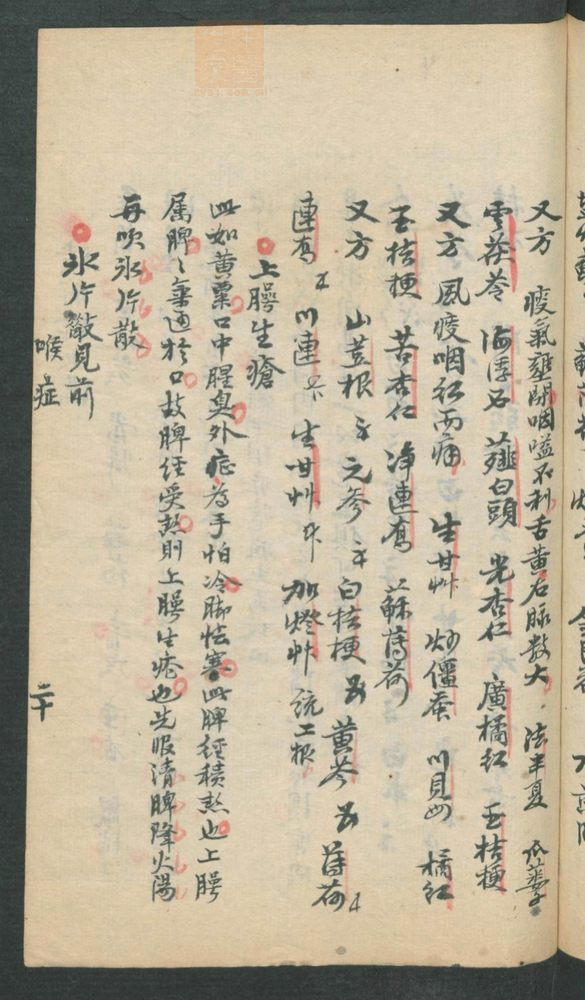 又方 痰氣壅閉咽嗌不利舌黃右脉數大 法半夏 瓜蔞
雲茯苓 海浮石 薤白頭 光杏仁 廣橘紅 玉桔梗
又方 風痰咽紅而痛 生甘艸 炒僵蚕 川貝母 橘紅
玉桔梗 苦杏仁 净連翹 蘇薄荷
又方 山荳根 元參 白桔梗 黃芩 薄荷
連翹 川連 生甘艸 加燈艸
上腭生瘡
此如黃粟口中腥臭外症為手怕冷脚怯寒此脾經積熱也上腭
属脾脾竅通於口故脾經受熱則上腭生瘡也先服清脾降火湯
再吹氷片散
氷片散見前
喉症
二十